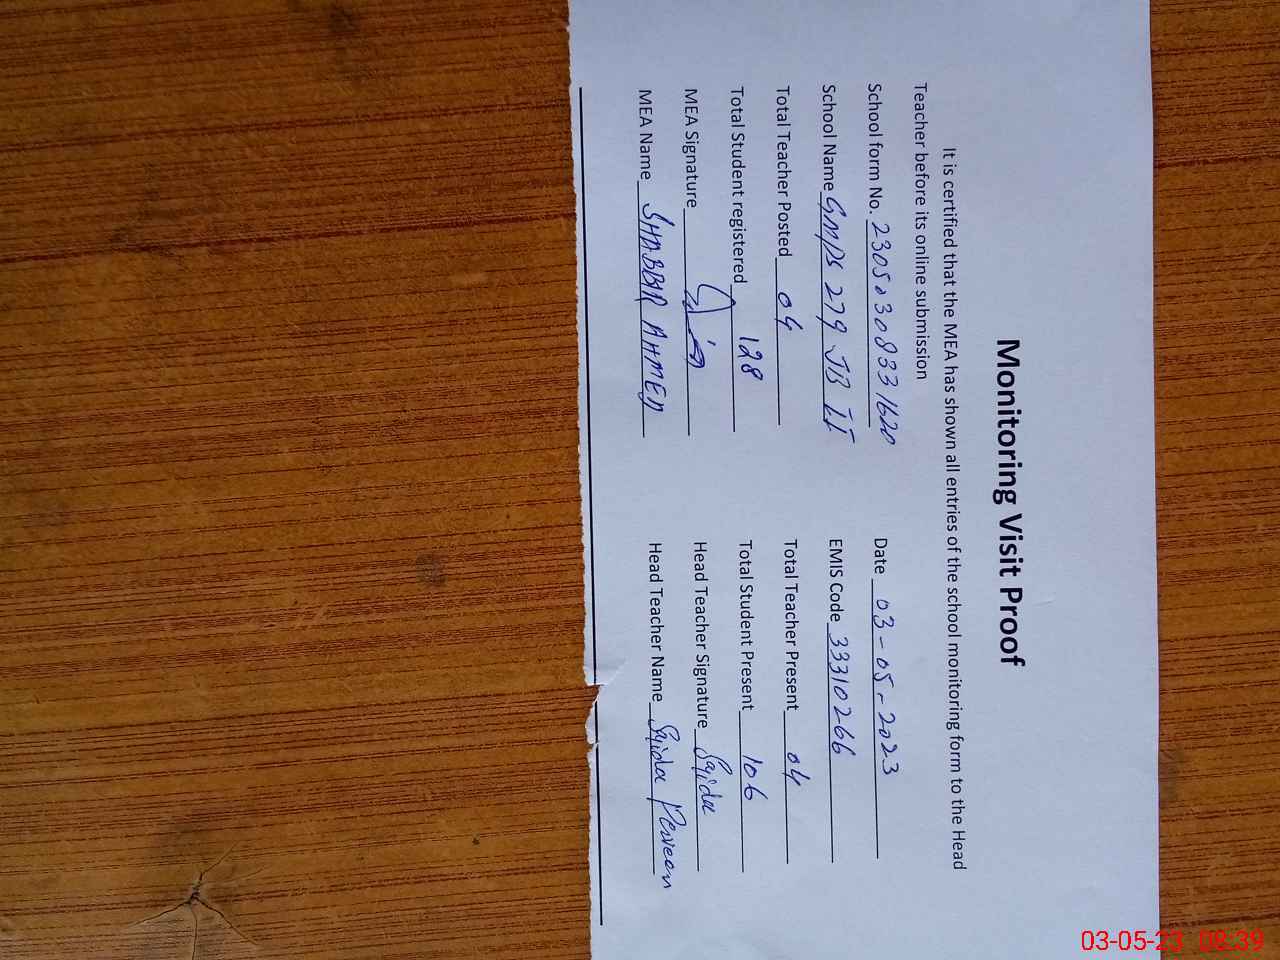 Monitoring Visit Proof
It is certified that the MEA has shown all entries of the school monitoring form to the Head
Teacher before its online submission
School form No. 23050308331620 Date 03-05-2023
School Name GMPS 279 JB II EMIS Code 33310266
Total Teacher Posted 04 Total Teacher Present 04
Total Student registered 128 Total Student Present 106
MEA Signature Head Teacher Signature Sajida
MEA Name SHABBIR AHMED Head Teacher Name Sajida Perveen
03-05-23 08:39